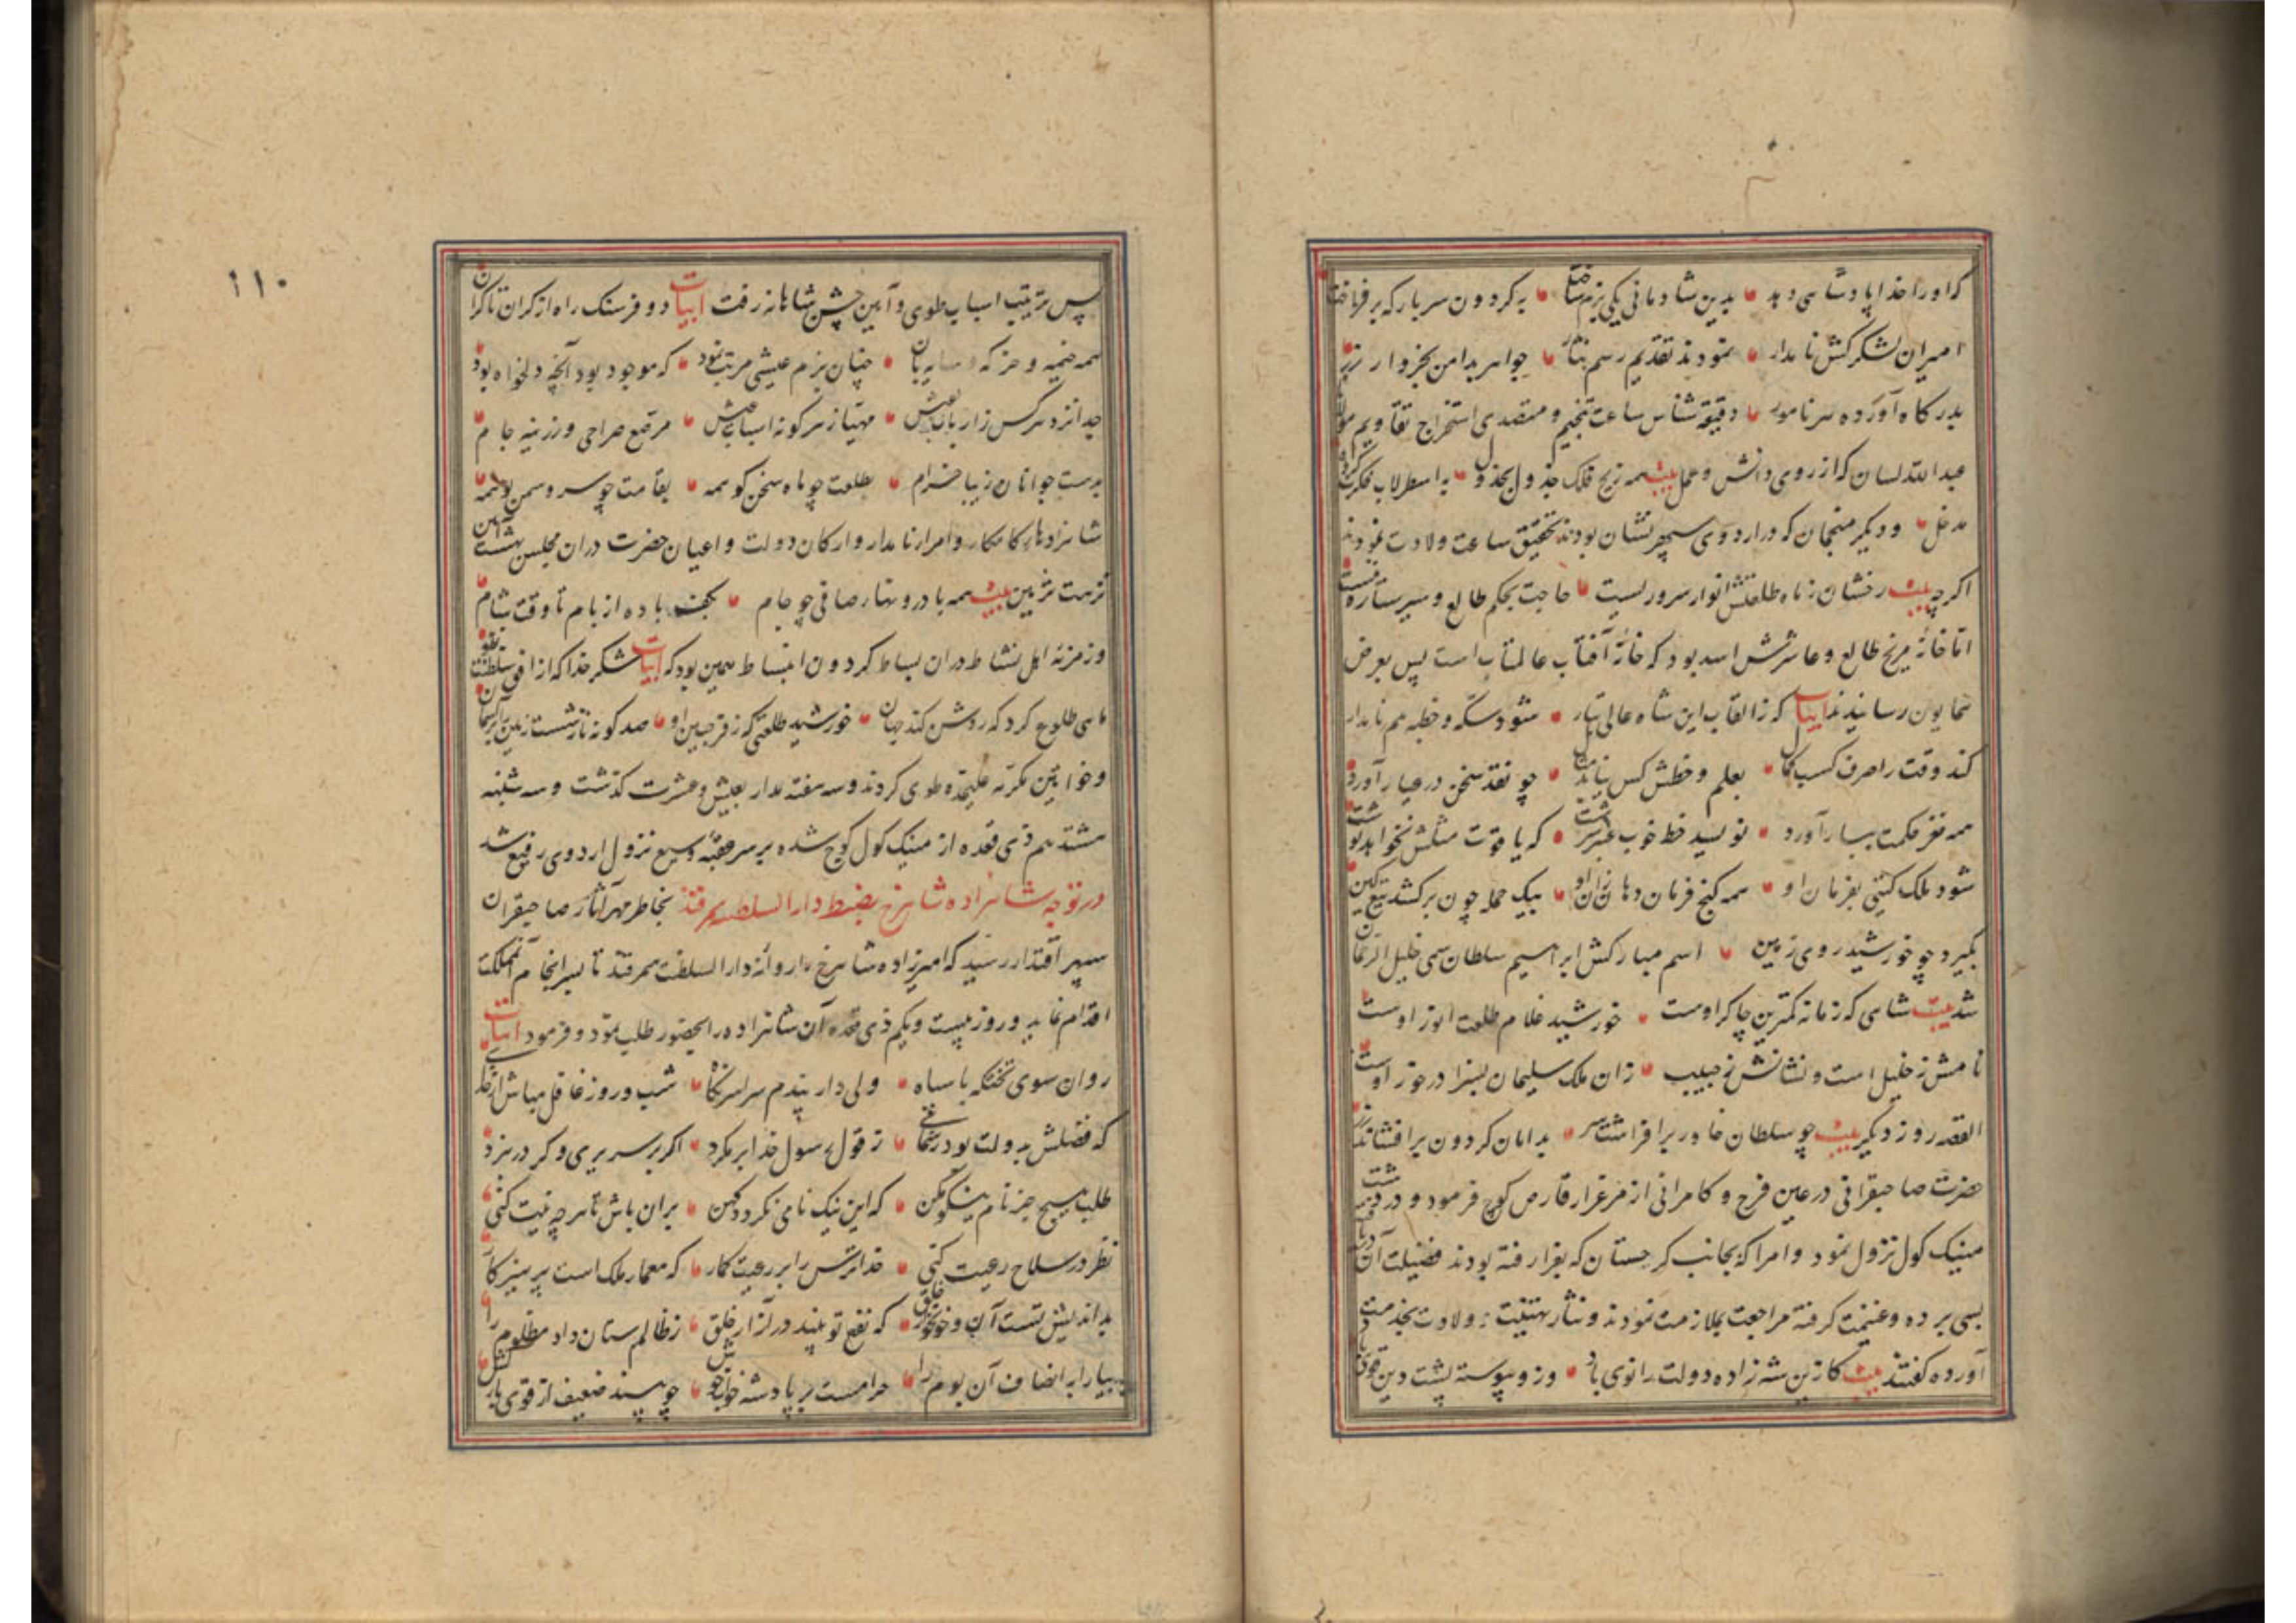 که او را خدا پادشاهی دهد بدین شادمانی یکی بزم ساخت به گردون سر بارگه برفراخت
امیران لشکرکش نامدار نمودند تقدیم رسم نثار جواهر بدامن بخروار زر
بدرگاه آورده هر نامور دقیقه شناس ساعت تنجیم و متصدی استخراج تقاویم مولانا
عبدالله لسان که از روی دانش و عمل بیت همه زیج فلک جدول بجدول به اسطرلاب فکرت کرده
مدخل و دیگر منجمان که در اردوی سپهرنشان بودند تحقیق ساعت ولادت نمودند
اگرچه بیت رخشان ز ماه طلعتش انوار سروریست حاجت بحکم طالع و سیر ستاره نیست
اما خانهٔ مریخ طالع و عاشرش اسد بود که خانهٔ آفتاب عالمتاب است پس بعرض
همایون رسانیدند ابیات که ز القاب این شاه عالی تبار شود سکه و خطبه هم نامدار
کند وقت را صرف کسب کمال بعلم و خطش کس نیابد همال چو نقد سخن در عیار آورد
همه نغز حکمت ببار آورد نویسد خط خوب عنبر سرشت که یاقوت مثلش نخواهد نوشت
شود ملک گیتی بفرمان او همه گنج فرمان دهان زان او بیک حمله چون برکشد تیغ کین
بگیرد چو خورشید روی زمین اسم مبارکش ابراهیم سلطان سمی خلیل الرحمان
شد بیت شاهی که زمانه کمترین چاکر اوست خورشید غلام طلعت انور اوست
نامش ز خلیل است و نشانش ز حبیب زان ملک سلیمان بسزا درخور اوست
القصه روز دیگر بیت چو سلطان خاور برافراشت سر بدامان گردون برافشاند زر
حضرت صاحبقرانی در عین فرح و کامرانی از مرغزار قارص کوچ فرمود و در دشت
مینک کول نزول نمود و امرا که بجانب گرجستان که بغزا رفته بودند فضیلت آن دریافته
بسی برده و غنیمت گرفته مراجعت بملازمت نمودند و نثار تهنیت ولادت بخدمت
آورده گفتند بیت کازین شه زاده دولت را نوی باد وزو پیوسته پشت دین قوی باد
پس ترتیب اسباب طوی و آیین جشن شاهانه رفت ابیات دو فرسنگ راه از کران تا کران
همه خیمه و خرگه و سایه بان چنان بزم عیشی مرتب نمود که موجود بود آنچه دلخواه بود
جدا نزد هرکس ز ارباب عیش مهیا ز هرگونه اسباب عیش مرصع صراحی و زرینه جام
بدست جوانان زیبا خرام بطلعت چو ماه سخن گو همه بقامت چو سرو سمن بو همه
شاهزادهای کامکار و امرای نامدار و ارکان دولت و اعیان حضرت در آن مجلس بهشت آیین
نزهت تزیین بیت همه با درونهای صافی چو جام بکف باده از بام تا وقت شام
و زمزمهٔ اهل نشاط در آن بساط گردون انبساط همین بود که ابیات شکر خدا که از افق سلطنت
ماهی طلوع کرد که روشن کند جهان خورشید طلعتی که ز فر جبین او صد گونه نازشست زمین را بر آسمان
و خواتین مکرمه علیحده طوی کردند و سه هفته مدار بعیش و عشرت گذشت و سه شنبه
هشتدهم ذی قعده از مینک کول کوچ شده بر سر عقبهٔ وسیع نزول اردوی رفیع شد
در توجه شاهزاده شاهرخ بضبط دارالسلطنه سمرقند بخاطر مهر آثار صاحبقران
سپهر اقتدار رسید که امیرزاده شاهرخ را روانه دارالسلطنت سمرقند تا بسرانجام آن مملکت
اقدام نماید و روز بیست و یکم ذی قعده آن شاهزاده را بحضور طلب نمود و فرمود ابیات
روان سوی تختگه با سپاه ولی دار پندم سراسر نگاه شب و روز غافل مباش از خدای
که فضلش بدولت بود رهنمای ز قول رسول خدا برمگرد اگر بر سریری و گر در نبرد
طلب هیچ جز نام نیکو مکن که این نیک نامی نگردد کهن بران باش تا هرچه نیت کنی
نظر در صلاح رعیت کنی خدا ترس را بر رعیت گمار که معمار ملک است پرهیزکار
بداندیش تست آن و خونخوار خلق که نفع تو بیند در آزار خلق ز ظالم ستان داد مظلوم را
بیارا به انصاف آن بوم را حرامست بر پادشه خواب خوش چو بیند ضعیف از قوی بارکش
١١٠